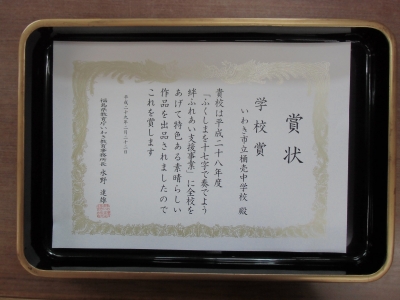 賞状
学校賞
いわき市立桶売中学校 殿
貴校は平成二十八年度
「ふくしまを十七字で奏でよう
絆ふれあい支援事業」に全校を
あげて特色ある素晴らしい
作品を出品されましたので
これを賞します
平成二十九年二月二十二日
福島県教育庁いわき教育事務所長 水野 達雄